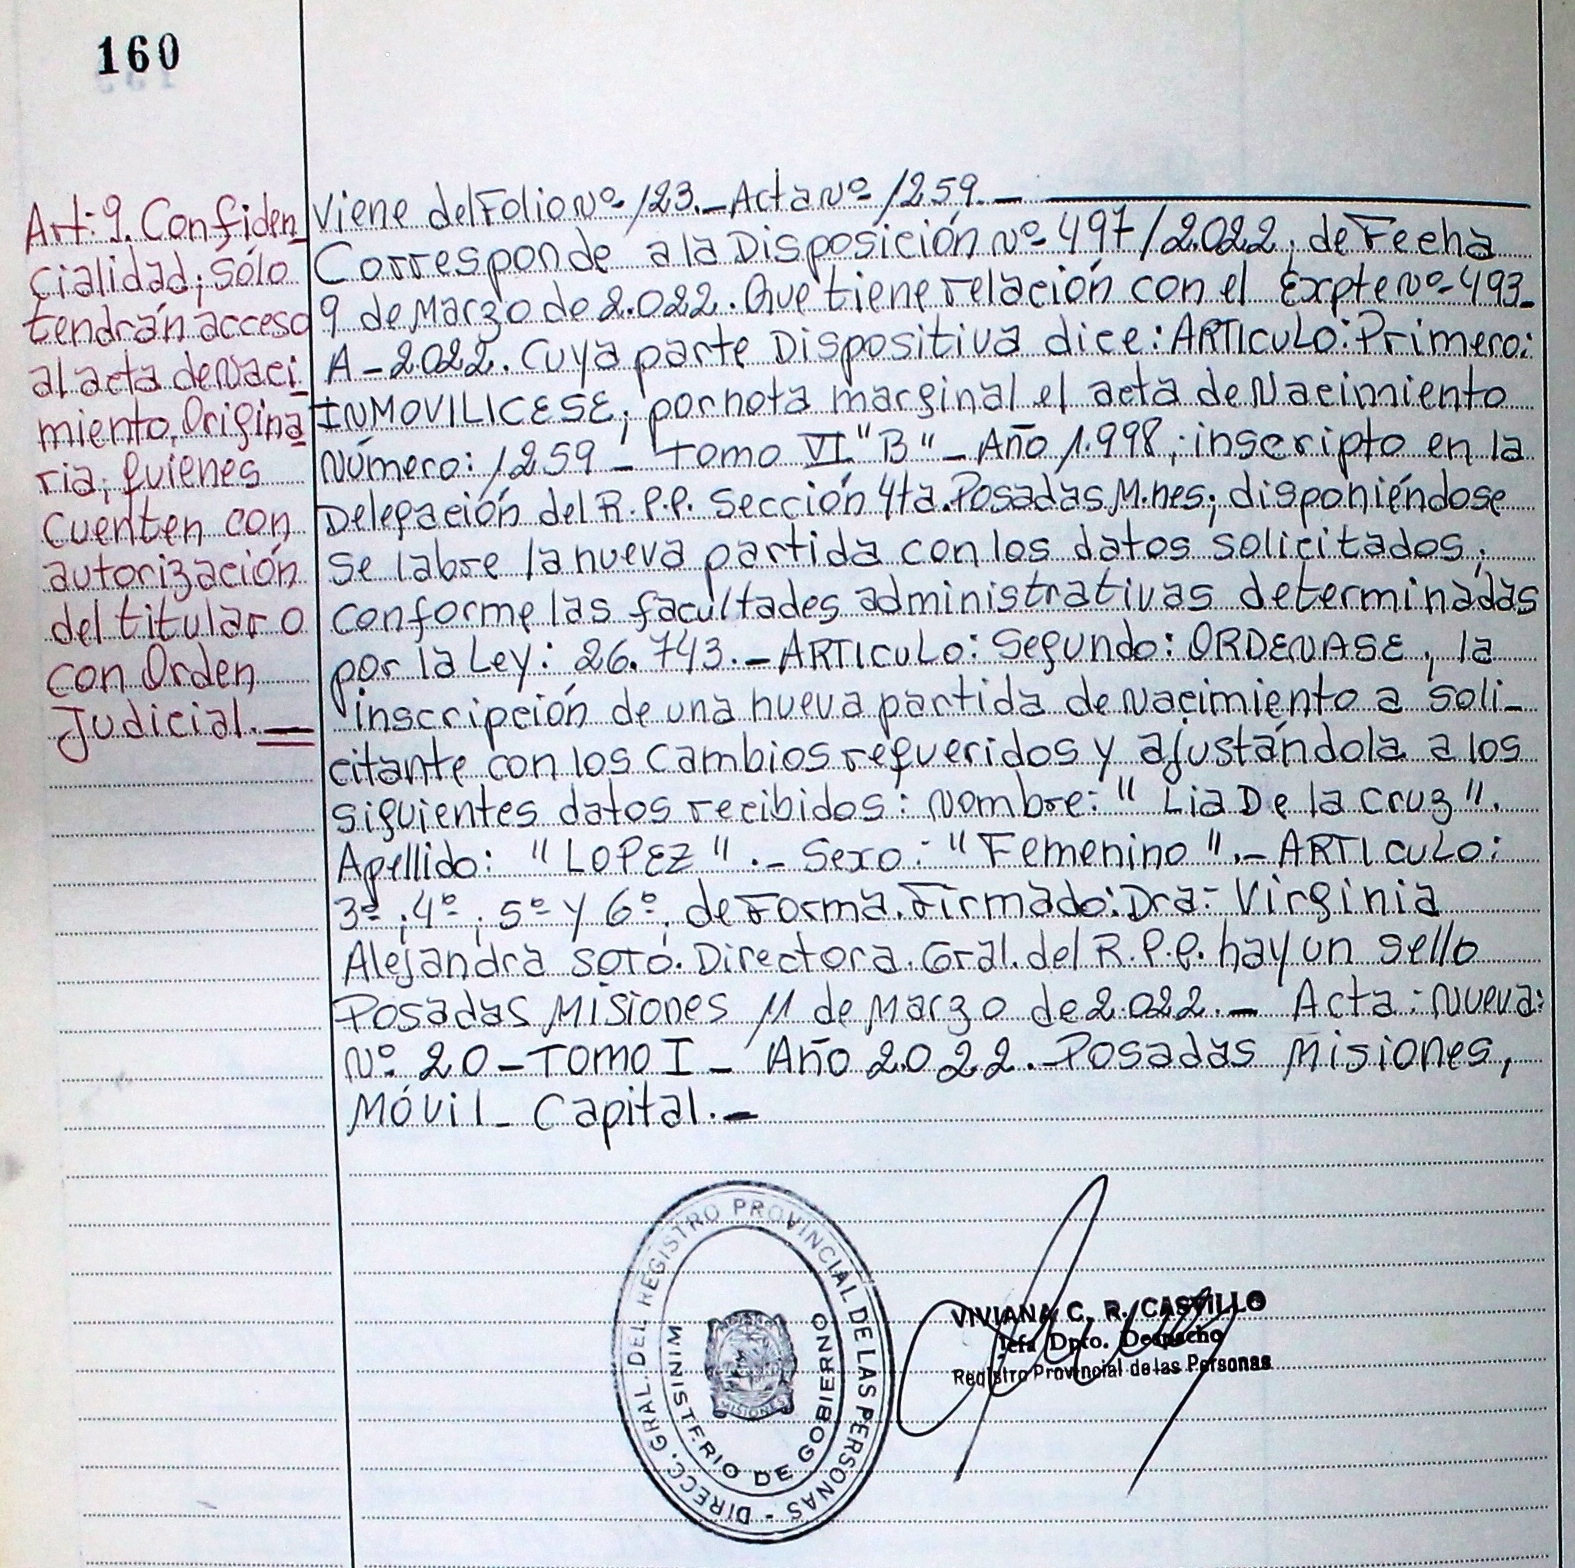 160
Art: 9. Confiden_
cialidad; sólo
tendrán acceso
al acta de Naci_
miento, Origina
ria; quienes
cuenten con
autorización
del titular o
con Orden
Judicial.—
Viene del Folio Nº 123.— Acta Nº 1259.—
Corresponde a la Disposición Nº 497/2.022, de Fecha
9 de Marzo de 2.022. Que tiene relación con el Expte Nº 493_
A-2022. Cuya parte Dispositiva dice: ARTICULO: Primero:
INMOVILICESE, por nota marginal el acta de Nacimiento
Número: 1259 - Tomo VI "B" - Año 1.998, inscripto en la
Delegación del R.P.P. Sección 4ta. Posadas M.nes; disponiéndose
se labre la nueva partida con los datos solicitados,
conforme las facultades administrativas determinadas
por la Ley: 26.743.- ARTICULO: Segundo: ORDENASE, la
inscripción de una nueva partida de Nacimiento a soli-
citante con los cambios requeridos y ajustándola a los
siguientes datos recibidos: Nombre: "Lia De la Cruz".
Apellido: "LOPEZ".- Sexo: "Femenino".- ARTICULO:
3º, 4º, 5º y 6º, de Forma. Firmado: Dra- Virginia
Alejandra SOTO. Directora. Gral. del R.P.P. hay un sello
Posadas Misiones 11 de Marzo de 2.022.- Acta: Nueva:
Nº 20 - TOMO I - Año 2.022.- Posadas Misiones,
Móvil - Capital.-
DIRECC. GRAL. DEL REGISTRO PROVINCIAL DE LAS PERSONAS -
MINISTERIO DE GOBIERNO
MISIONES
VIVIANA C. R. CASTILLO
Jefa Dpto. Despacho
Registro Provincial de las Personas